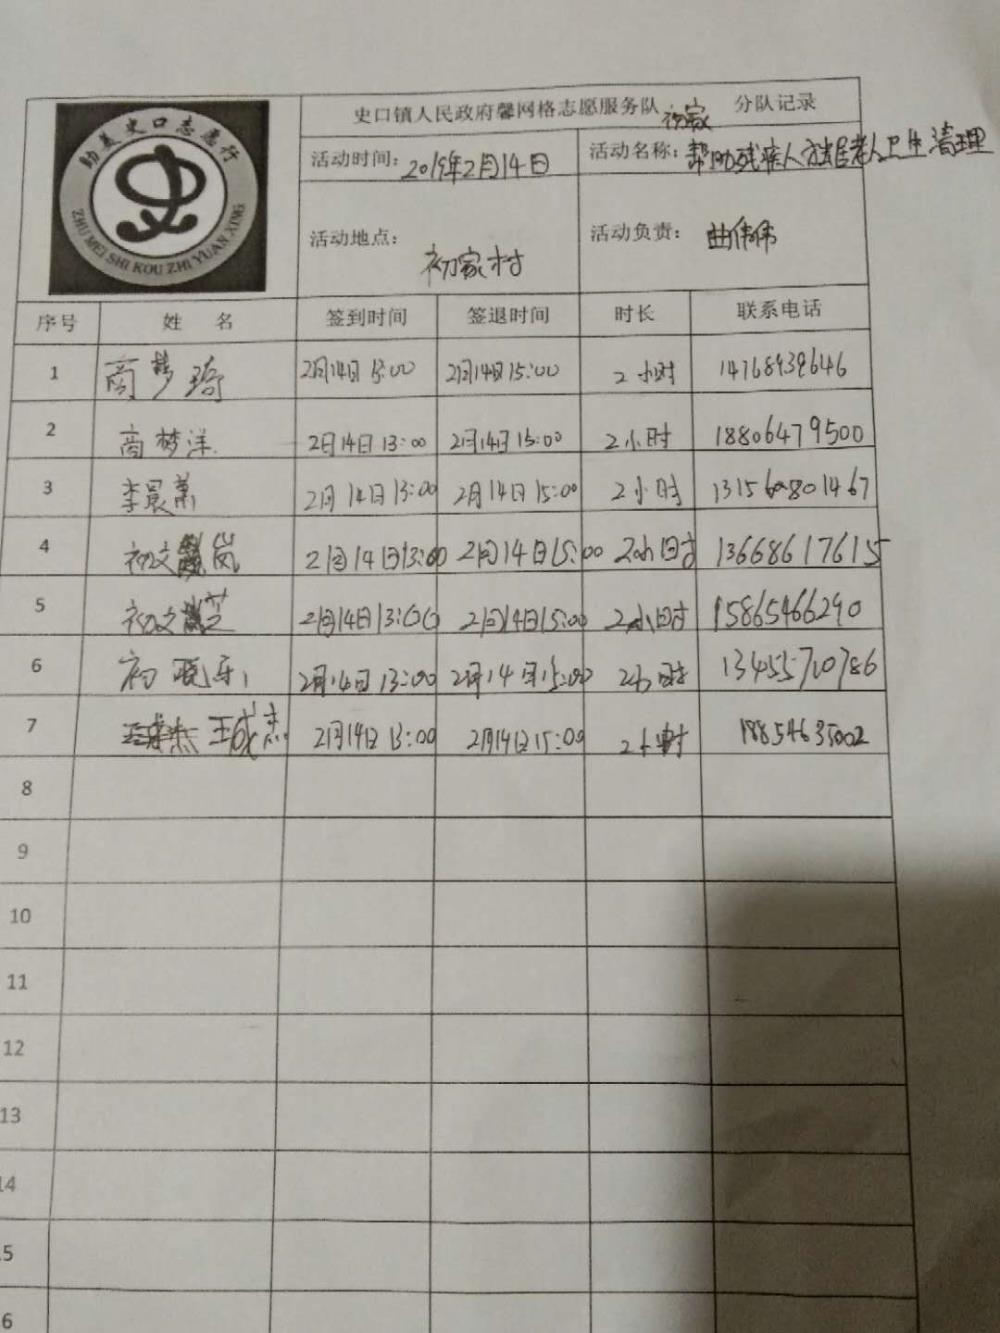 助美史口志愿行
ZHU MEI SHI KOU ZHI YUAN XING
史口镇人民政府馨网格志愿服务队 初家 分队记录
活动时间：2019年2月14日 活动名称：帮助残疾人 独居老人卫生清理
活动地点：初家村 活动负责：曲伟伟
序号 姓 名 签到时间 签退时间 时长 联系电话
1 商梦琦 2月14日 13:00 2月14日 15:00 2小时 14768939646
2 商梦洋 2月14日 13:00 2月14日 15:00 2小时 18806479500
3 李晨萧 2月14日 13:00 2月14日 15:00 2小时
4 初文岚 2月14日 13:00 2月14日 15:00 2小时 13668617615
5 初文芝 2月14日 13:00 2月14日 15:00 2小时 15865466290
6 初晓乐 2月14日 13:00 2月14日 15:00 2小时 13455710786
7 王成杰 2月14日 13:00 2月14日 15:00 2小时 18854635002
8
9
10
11
12
13
14
5
6